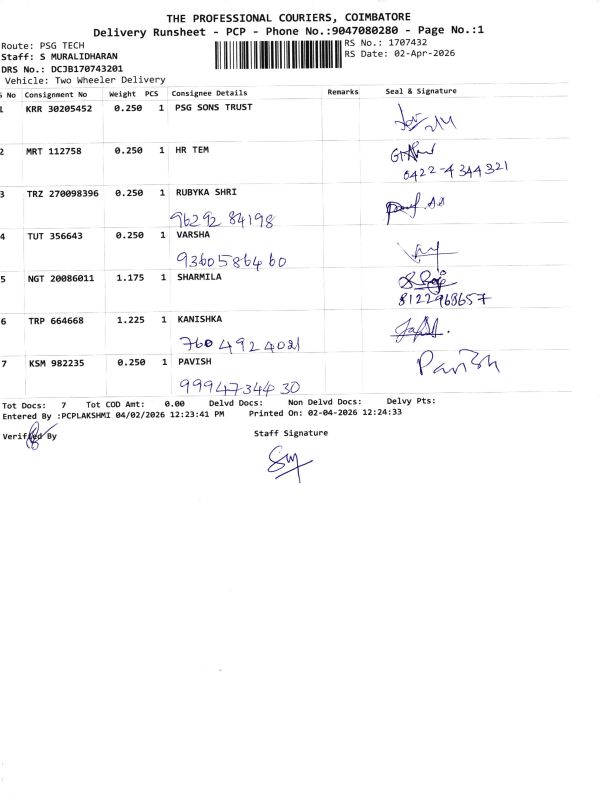 THE PROFESSIONAL COURIERS, COIMBATORE
Delivery Runsheet - PCP - Phone No.:9047080280 - Page No.:1
Route: PSG TECH RS No.: 1707432
Staff: S MURALIDHARAN RS Date: 02-Apr-2026
DRS No.: DCJB170743201
Vehicle: Two Wheeler Delivery
S No Consignment No Weight PCS Consignee Details Remarks Seal & Signature
1 KRR 30205452 0.250 1 PSG SONS TRUST
2 MRT 112758 0.250 1 HR TEM
0422-4344321
3 TRZ 270098396 0.250 1 RUBYKA SHRI
96292 84198
4 TUT 356643 0.250 1 VARSHA
9360586460
5 NGT 20086011 1.175 1 SHARMILA
8122968657
6 TRP 664668 1.225 1 KANISHKA
760 4924021
7 KSM 982235 0.250 1 PAVISH
Pavish
9994734430
Tot Docs: 7 Tot COD Amt: 0.00 Delvd Docs: Non Delvd Docs: Delvy Pts:
Entered By :PCPLAKSHMI 04/02/2026 12:23:41 PM Printed On: 02-04-2026 12:24:33
Verified By Staff Signature